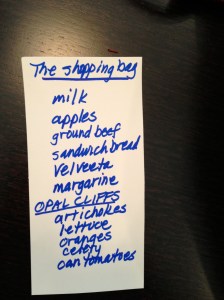 The shopping bag
milk
apples
ground beef
sandwich bread
Velveeta
margarine
OPAL CLIFFS
artichokes
lettuce
oranges
celery
can tomatoes